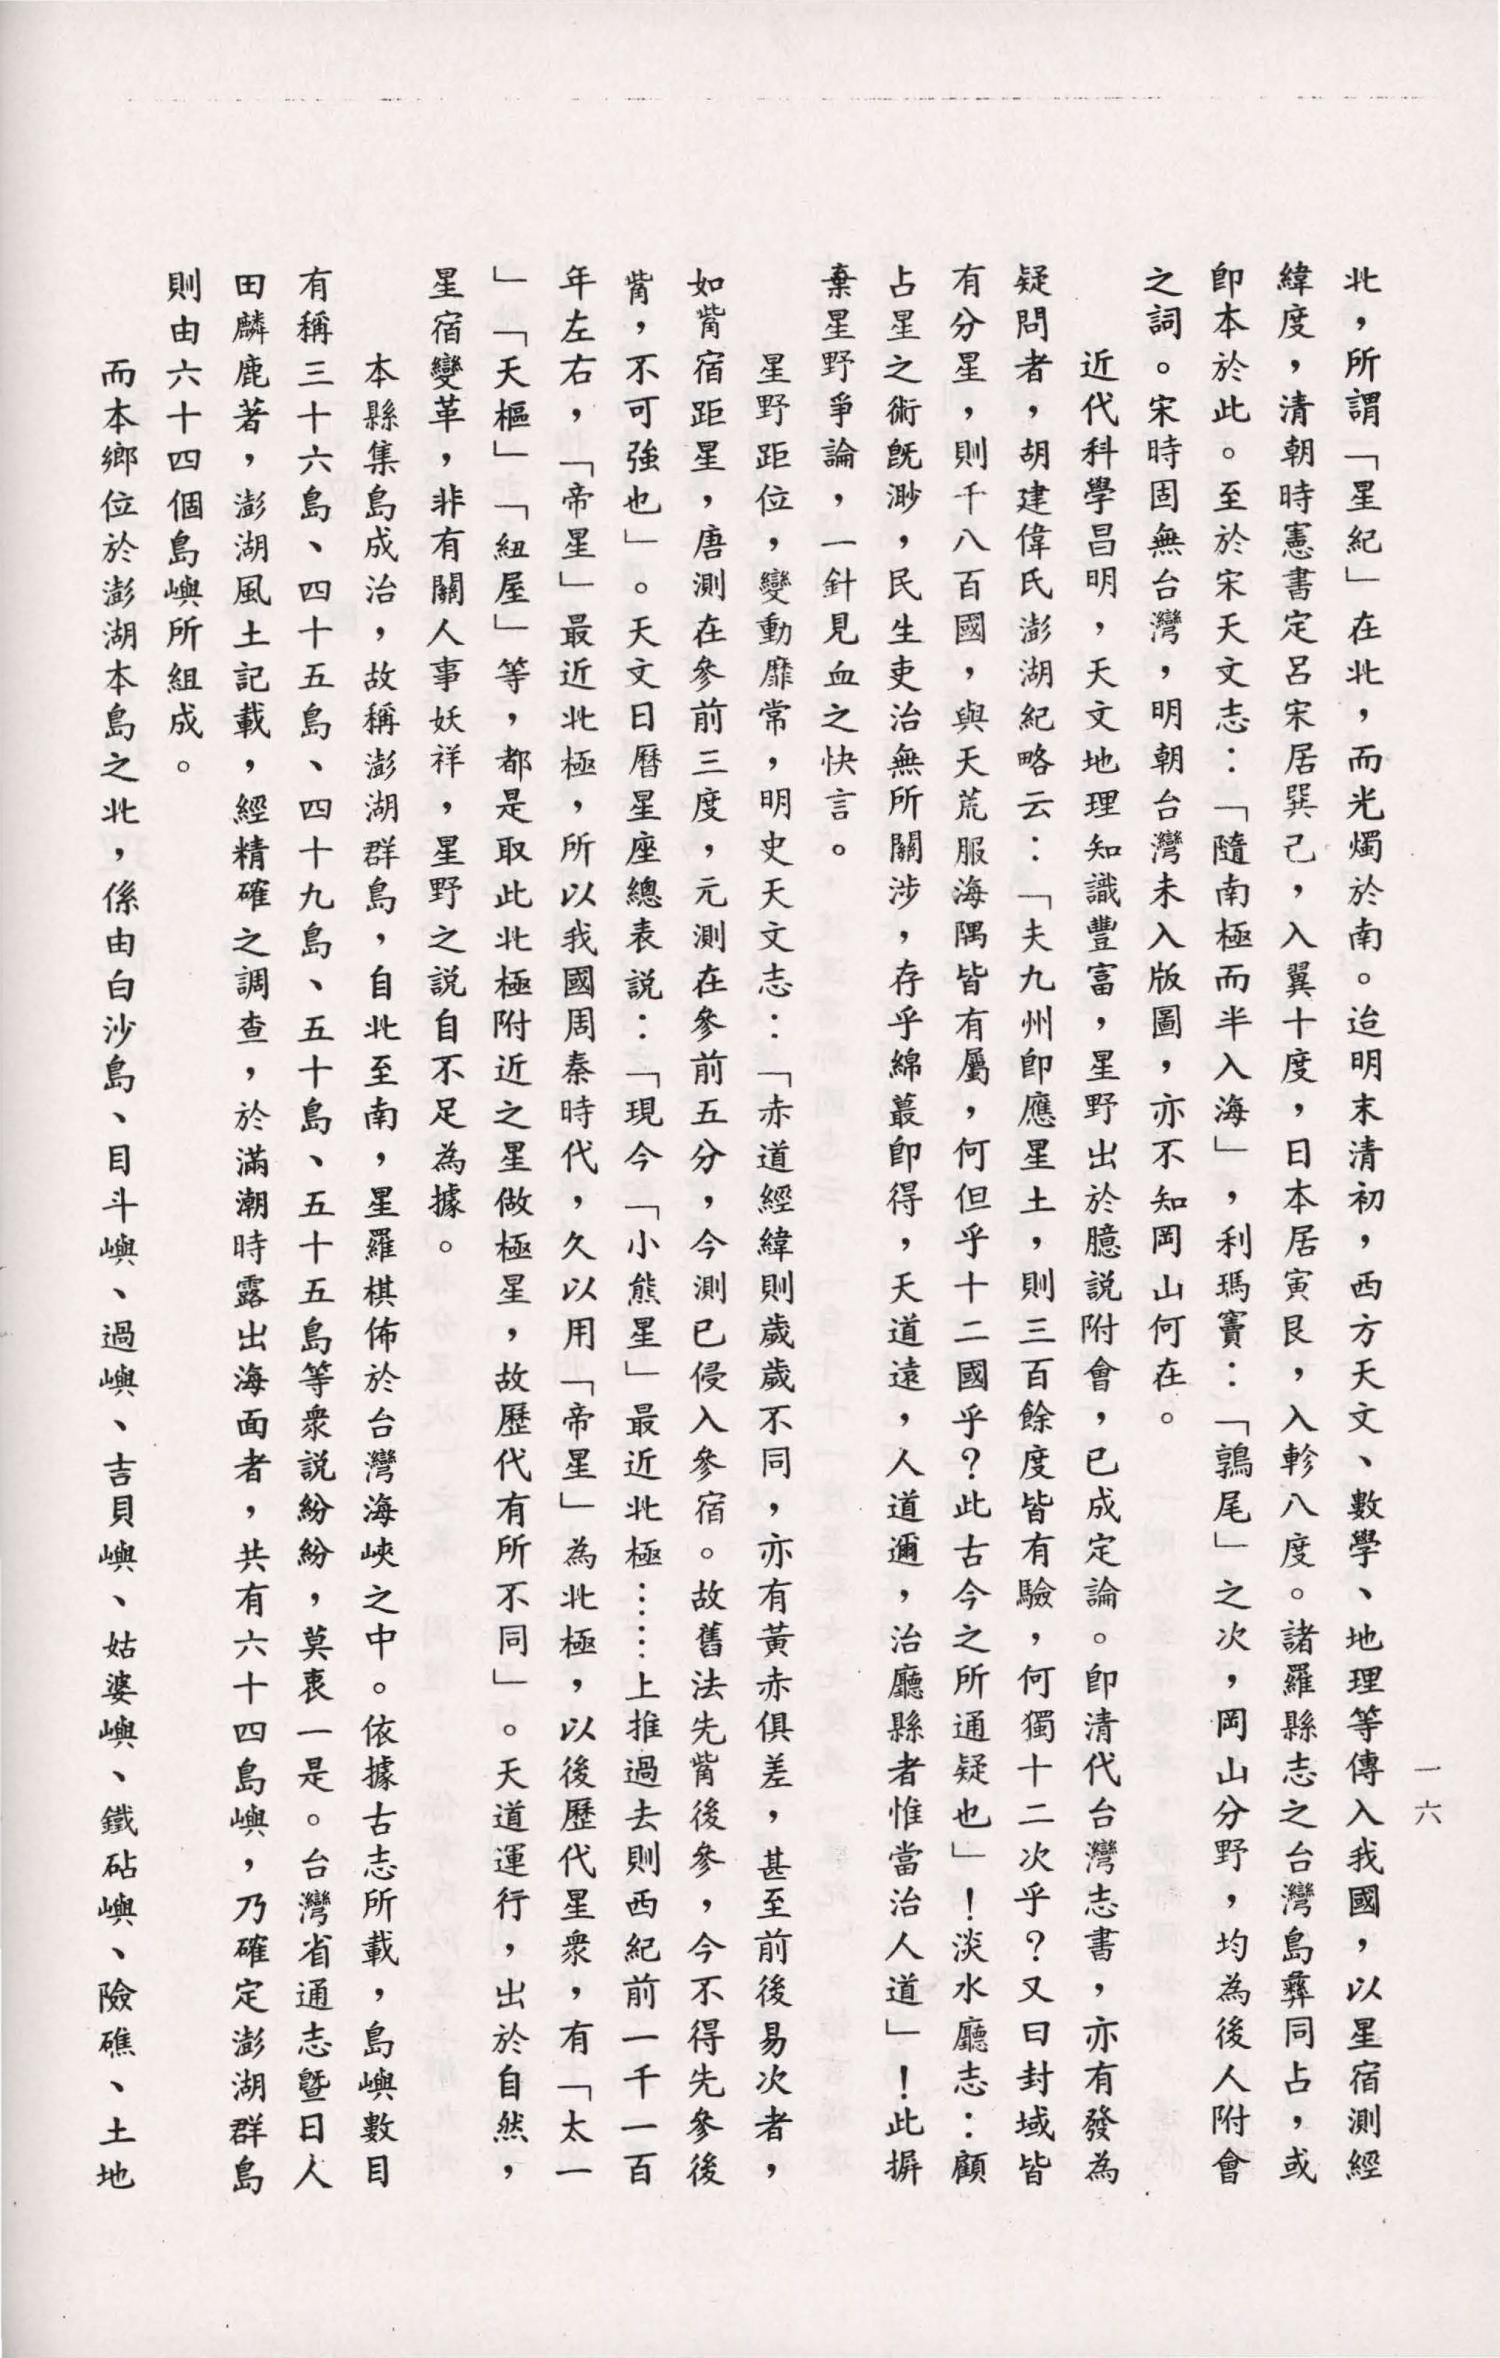 一六
北，所謂「星紀」在北，而光燭於南。迨明末清初，西方天文、數學、地理等傳入我國，以星宿測經
緯度，清朝時憲書定呂宋居巽己，入翼十度，日本居寅艮，入軫八度。諸羅縣志之台灣島彝同占，或
即本於此。至於宋天文志：「隨南極而半入海」，利瑪竇：「鶉尾」之次，岡山分野，均為後人附會
之詞。宋時固無台灣，明朝台灣未入版圖，亦不知岡山何在。
近代科學昌明，天文地理知識豐富，星野出於臆説附會，已成定論。即清代台灣志書，亦有發為
疑問者，胡建偉氏澎湖紀略云：「夫九州即應星土，則三百餘度皆有驗，何獨十二次乎？又曰封域皆
有分星，則千八百國，與天荒服海隅皆有屬，何但乎十二國乎？此古今之所通疑也」！淡水廳志：顧
占星之術既渺，民生吏治無所關涉，存乎綿蕞即得，天道遠，人道邇，治廳縣者惟當治人道」！此摒
棄星野爭論，一針見血之快言。
星野距位，變動靡常，明史天文志：「赤道經緯則歲歲不同，亦有黃赤俱差，甚至前後易次者，
如觜宿距星，唐測在參前三度，元測在參前五分，今測已侵入參宿。故舊法先觜後參，今不得先參後
觜，不可強也」。天文日曆星座總表說：「現今「小熊星」最近北極……上推過去則西紀前一千一百
年左右，「帝星」最近北極，所以我國周秦時代，久以用「帝星」為北極，以後歷代星衆，有「太一
」「天樞」「紐星」等，都是取此北極附近之星做極星，故歷代有所不同」。天道運行，出於自然，
星宿變革，非有關人事妖祥，星野之説自不足為據。
本縣集島成治，故稱澎湖群島，自北至南，星羅棋佈於台灣海峽之中。依據古志所載，島嶼數目
有稱三十六島、四十五島、四十九島、五十島、五十五島等衆説紛紛，莫衷一是。台灣省通志暨日人
田麟鹿著，澎湖風土記載，經精確之調查，於滿潮時露出海面者，共有六十四島嶼，乃確定澎湖群島
則由六十四個島嶼所組成。
而本鄉位於澎湖本島之北，係由白沙島、目斗嶼、過嶼、吉貝嶼、姑婆嶼、鐵砧嶼、險礁、土地